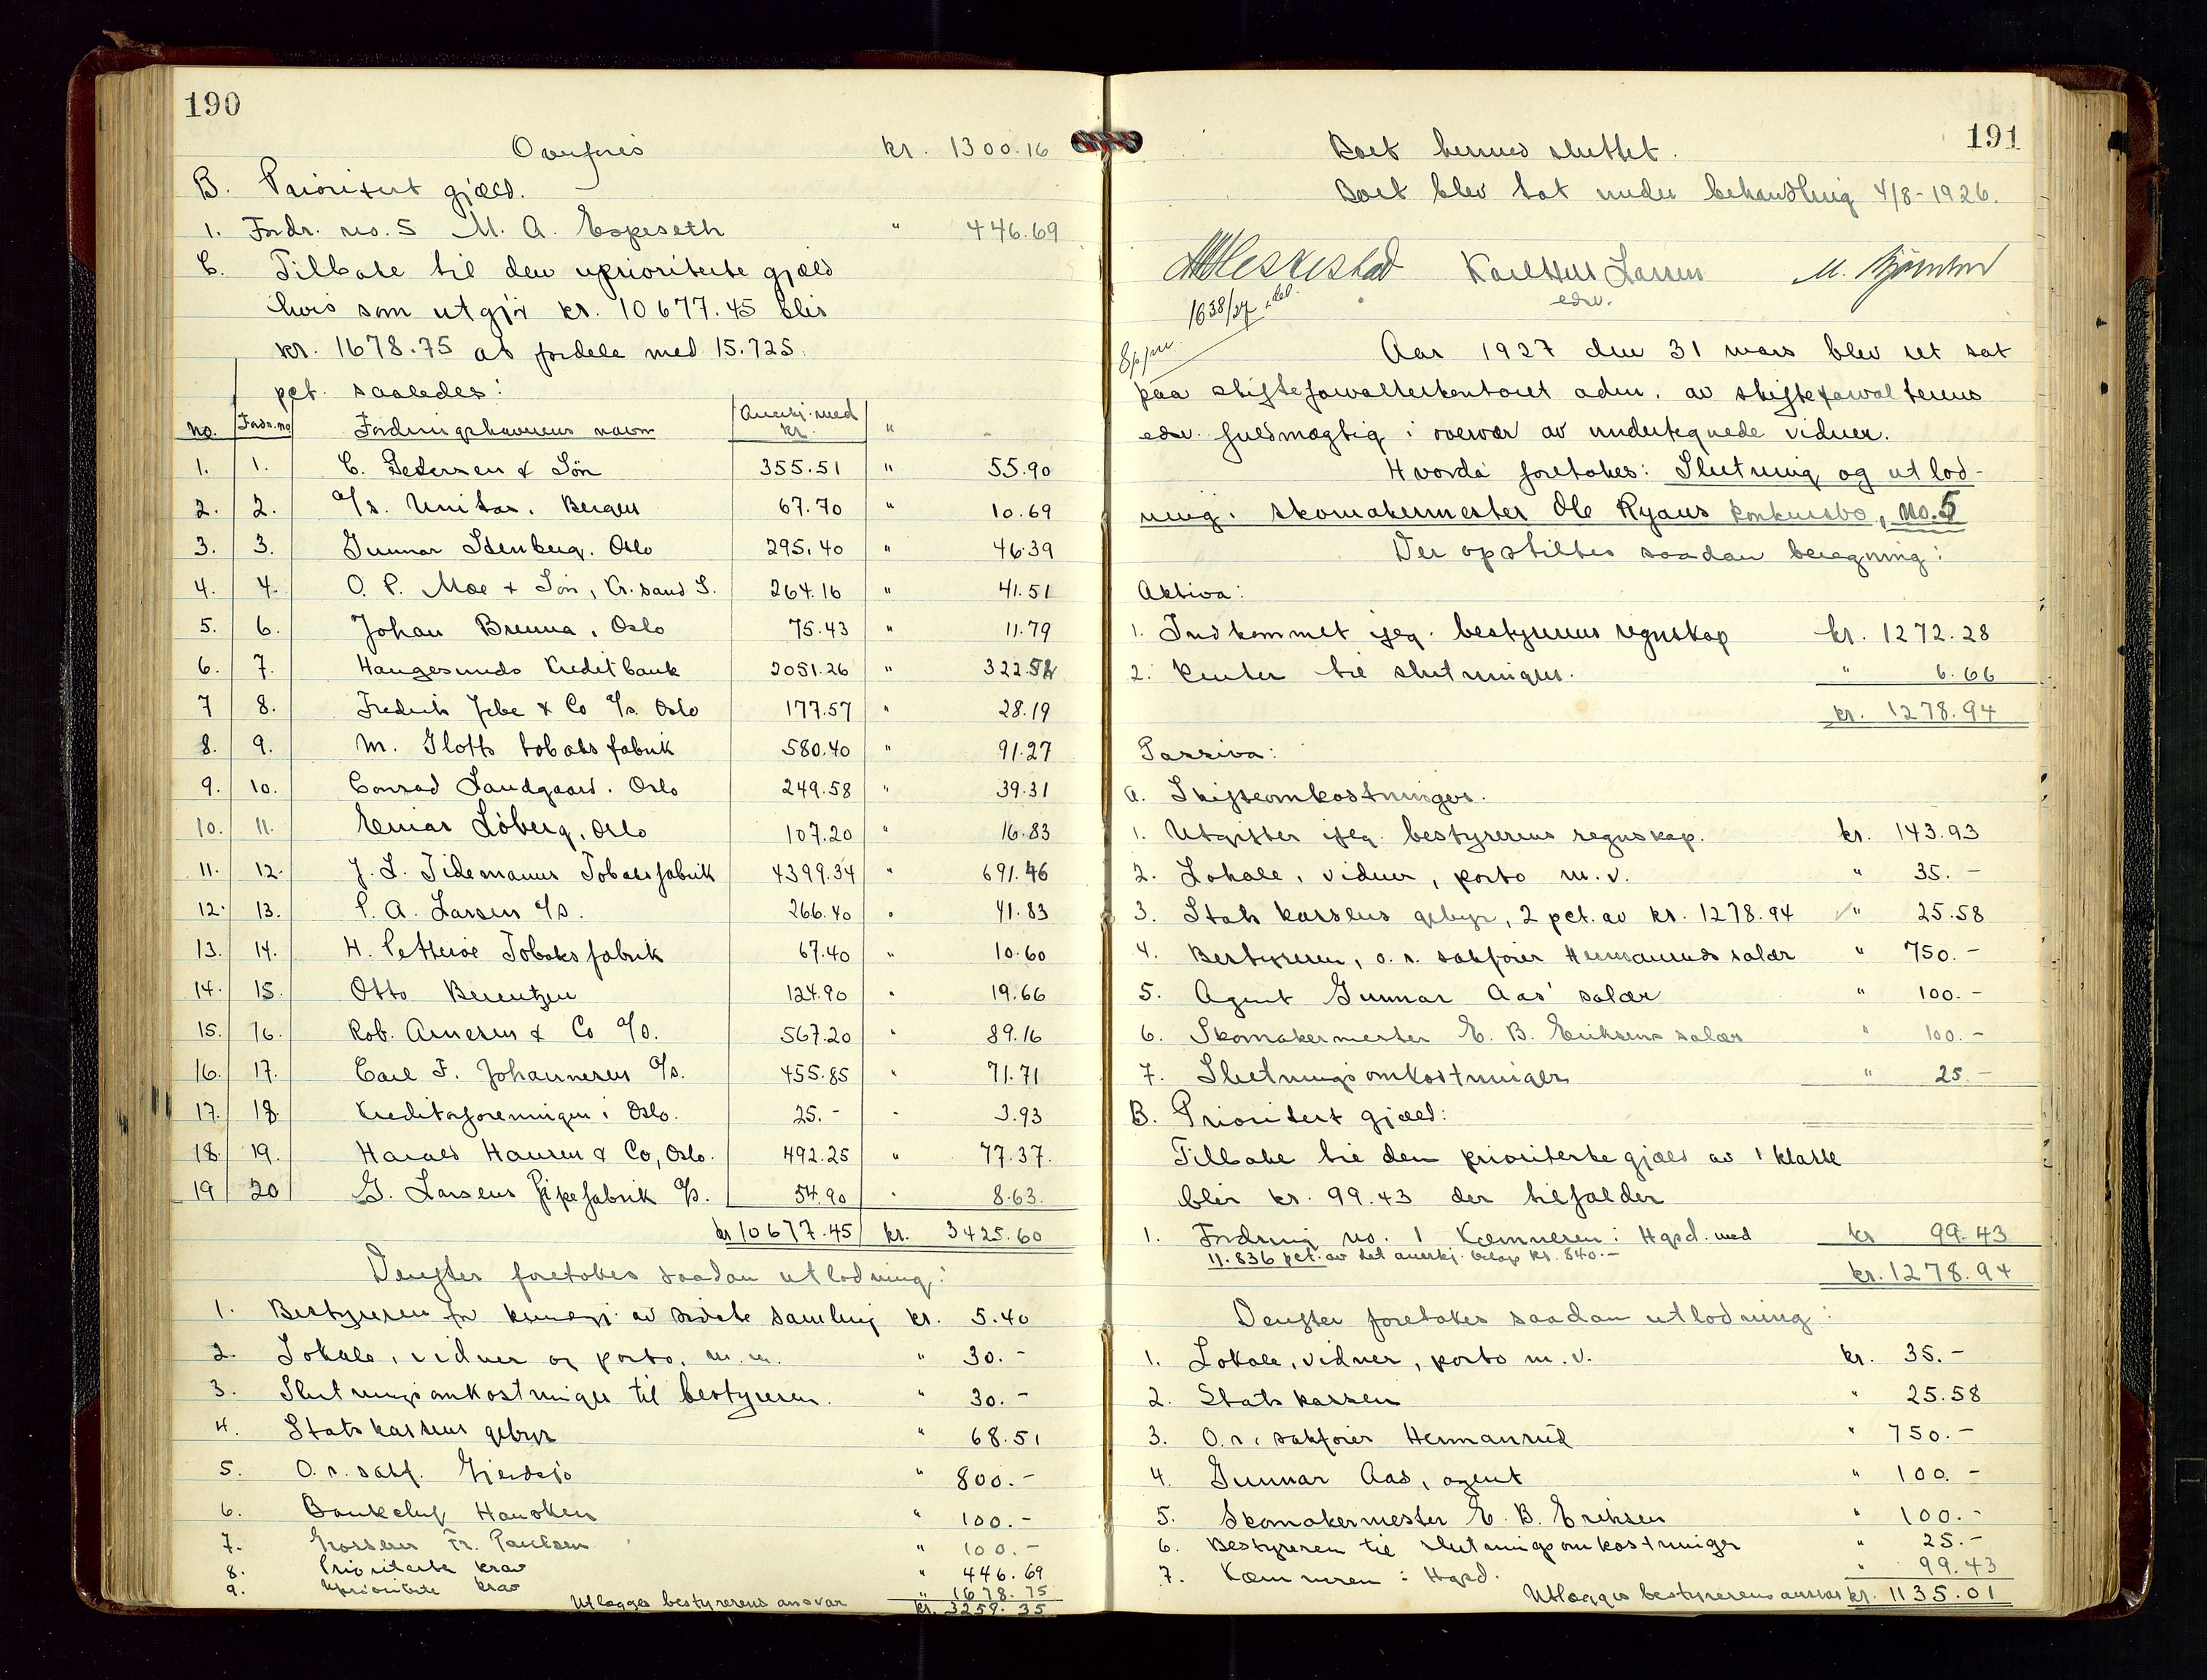 190
Overføres kr. 1300.16
B. Prioritert gjæld.
1. Fordr. no. 5 M. A. Espeseth " 446.69
C. Tilbake til den uprioriterte gjæld
hvis sum utgjør kr. 10677.45 blir
kr. 1678.75 at fordele med 15.725
pct. saaledes:
no. Fordr. no Fordringshaverens navn Anerkj. med kr. "
1. 1. C. Pedersen & Søn 355.51 " 55.90
2. 2. A/s. Unitas. Bergen 67.70 " 10.69
3. 3. Gunnar Stenberg. Oslo 295.40 " 46.39
4. 4. O. P. Moe & Søn, Kr.sand S. 264.16 " 41.51
5. 6. Johan Brenna, Oslo 75.43 " 11.79
6. 7. Haugesunds Kreditbank 2051.26 " 322.52
7 8. Fredrik Jebe & Co A/s. Oslo 177.57 " 28.19
8. 9. M. Glotts tobaksfabrik 580.40 " 91.27
9. 10. Conrad Landgaard. Oslo 249.58 " 39.31
10. 11. Einar Löberg, Oslo 107.20 " 16.83
11. 12. J. L. Tidemanns Tobaksfabrik 4399.34 " 691.46
12. 13. P. A. Larsen A/S. 266.40 " 41.83
13. 14. H. Petterøe Tobaksfabrik 67.40 " 10.60
14. 15. Otto Berentzen 124.90 " 19.66
15. 16. Rob. Arnesen & Co A/S. 567.20 " 89.16
16. 17. Carl F. Johannesen A/S. 455.85 " 71.71
17. 18. Kreditorforeningen i Oslo. 25.- " 3.93
18. 19. Harald Hansen & Co, Oslo. 492.25 " 77.37.
19 20 G. Larsens Pipefabrik A/S. 54.90 " 8.63.
kr 10677.45 kr. 3425.60
Derefter foretokes saadan utlodning:
1. Bestyreren for kunngj. av sidste samling kr. 5.40
2. Lokale, vidner og porto. m. m. " 30.-
3. Slutningsomkostninger til bestyreren. " 30.-
4. Statskassens gebyr " 68.51
5. O.r.sakf. Gjerdsjø " 800.-
6. Bankchef Haaoken " 100.-
7. Grosserer Fr. Paulsen " 100.-
8. Prioriterte krav " 446.69
9. Uprioriterte krav " 1678.75
Utlægges bestyrerens ansvar kr. 3259.35
191
Boet hermed sluttet.
Boet blev tat under behandling 4/8-1926.
Karl Hus Larsen
edsv.
1638/27 del.
Aar 1927 den 31 mars blev ret sat
paa skifteforvalterkontoret adm. av skifteforvalterens
edsv. fuldmægtig i overvær av undertegnede vidner.
Hvorda foretokes: Slutning og utlod-
ning i skomakermester Ole Ryans konkursbo, no. 5
Der opstilles saadan beregning:
Aktiva:
1. Indkommet ifølg. bestyrerens regnskap kr. 1272.28
2. Renter til slutningen. " 6.66
kr. 1278.94
Passiva:
A. Skifteomkostninger.
1. Utgifter ifølg. bestyrerens regnskap. kr. 143.93
2. Lokale, vidner, porto m.v. " 35.-
3. Statskassens gebyr, 2 pct. av kr. 1278.94 " 25.58
4. Bestyreren, o. r. sakfører Hermanruds salær " 750.-
5. Agent Gunnar Aas' salær " 100.-
6. Skomakermester E. B. Eriksens salær " 100.-
7. Slutningsomkostninger " 25.-
B. Prioritert gjæld:
Tilbake til den prioriterte gjæld av 1 klasse
blir kr. 99.43 der tilfalder
1. Fordring no. 1 Kæmneren i Hgsd. med kr 99.43
11.836 pct. av det anerkj. beløp kr. 840.-
kr. 1278.94
Derefter foretokes saadan utlodning:
1. Lokale, vidner, porto m.v. kr. 35.-
2. Statskassen " 25.58
3. O.r. sakfører Hermanrud " 750.-
4. Gunnar Aas, agent " 100.-
5. Skomakermester E. B. Eriksen " 100.-
6. Bestyreren til slutningsomkostninger " 25.-
7. Kæmneren i Hgsd. " 99.43
Utlægges bestyrerens ansvar kr. 1135.01